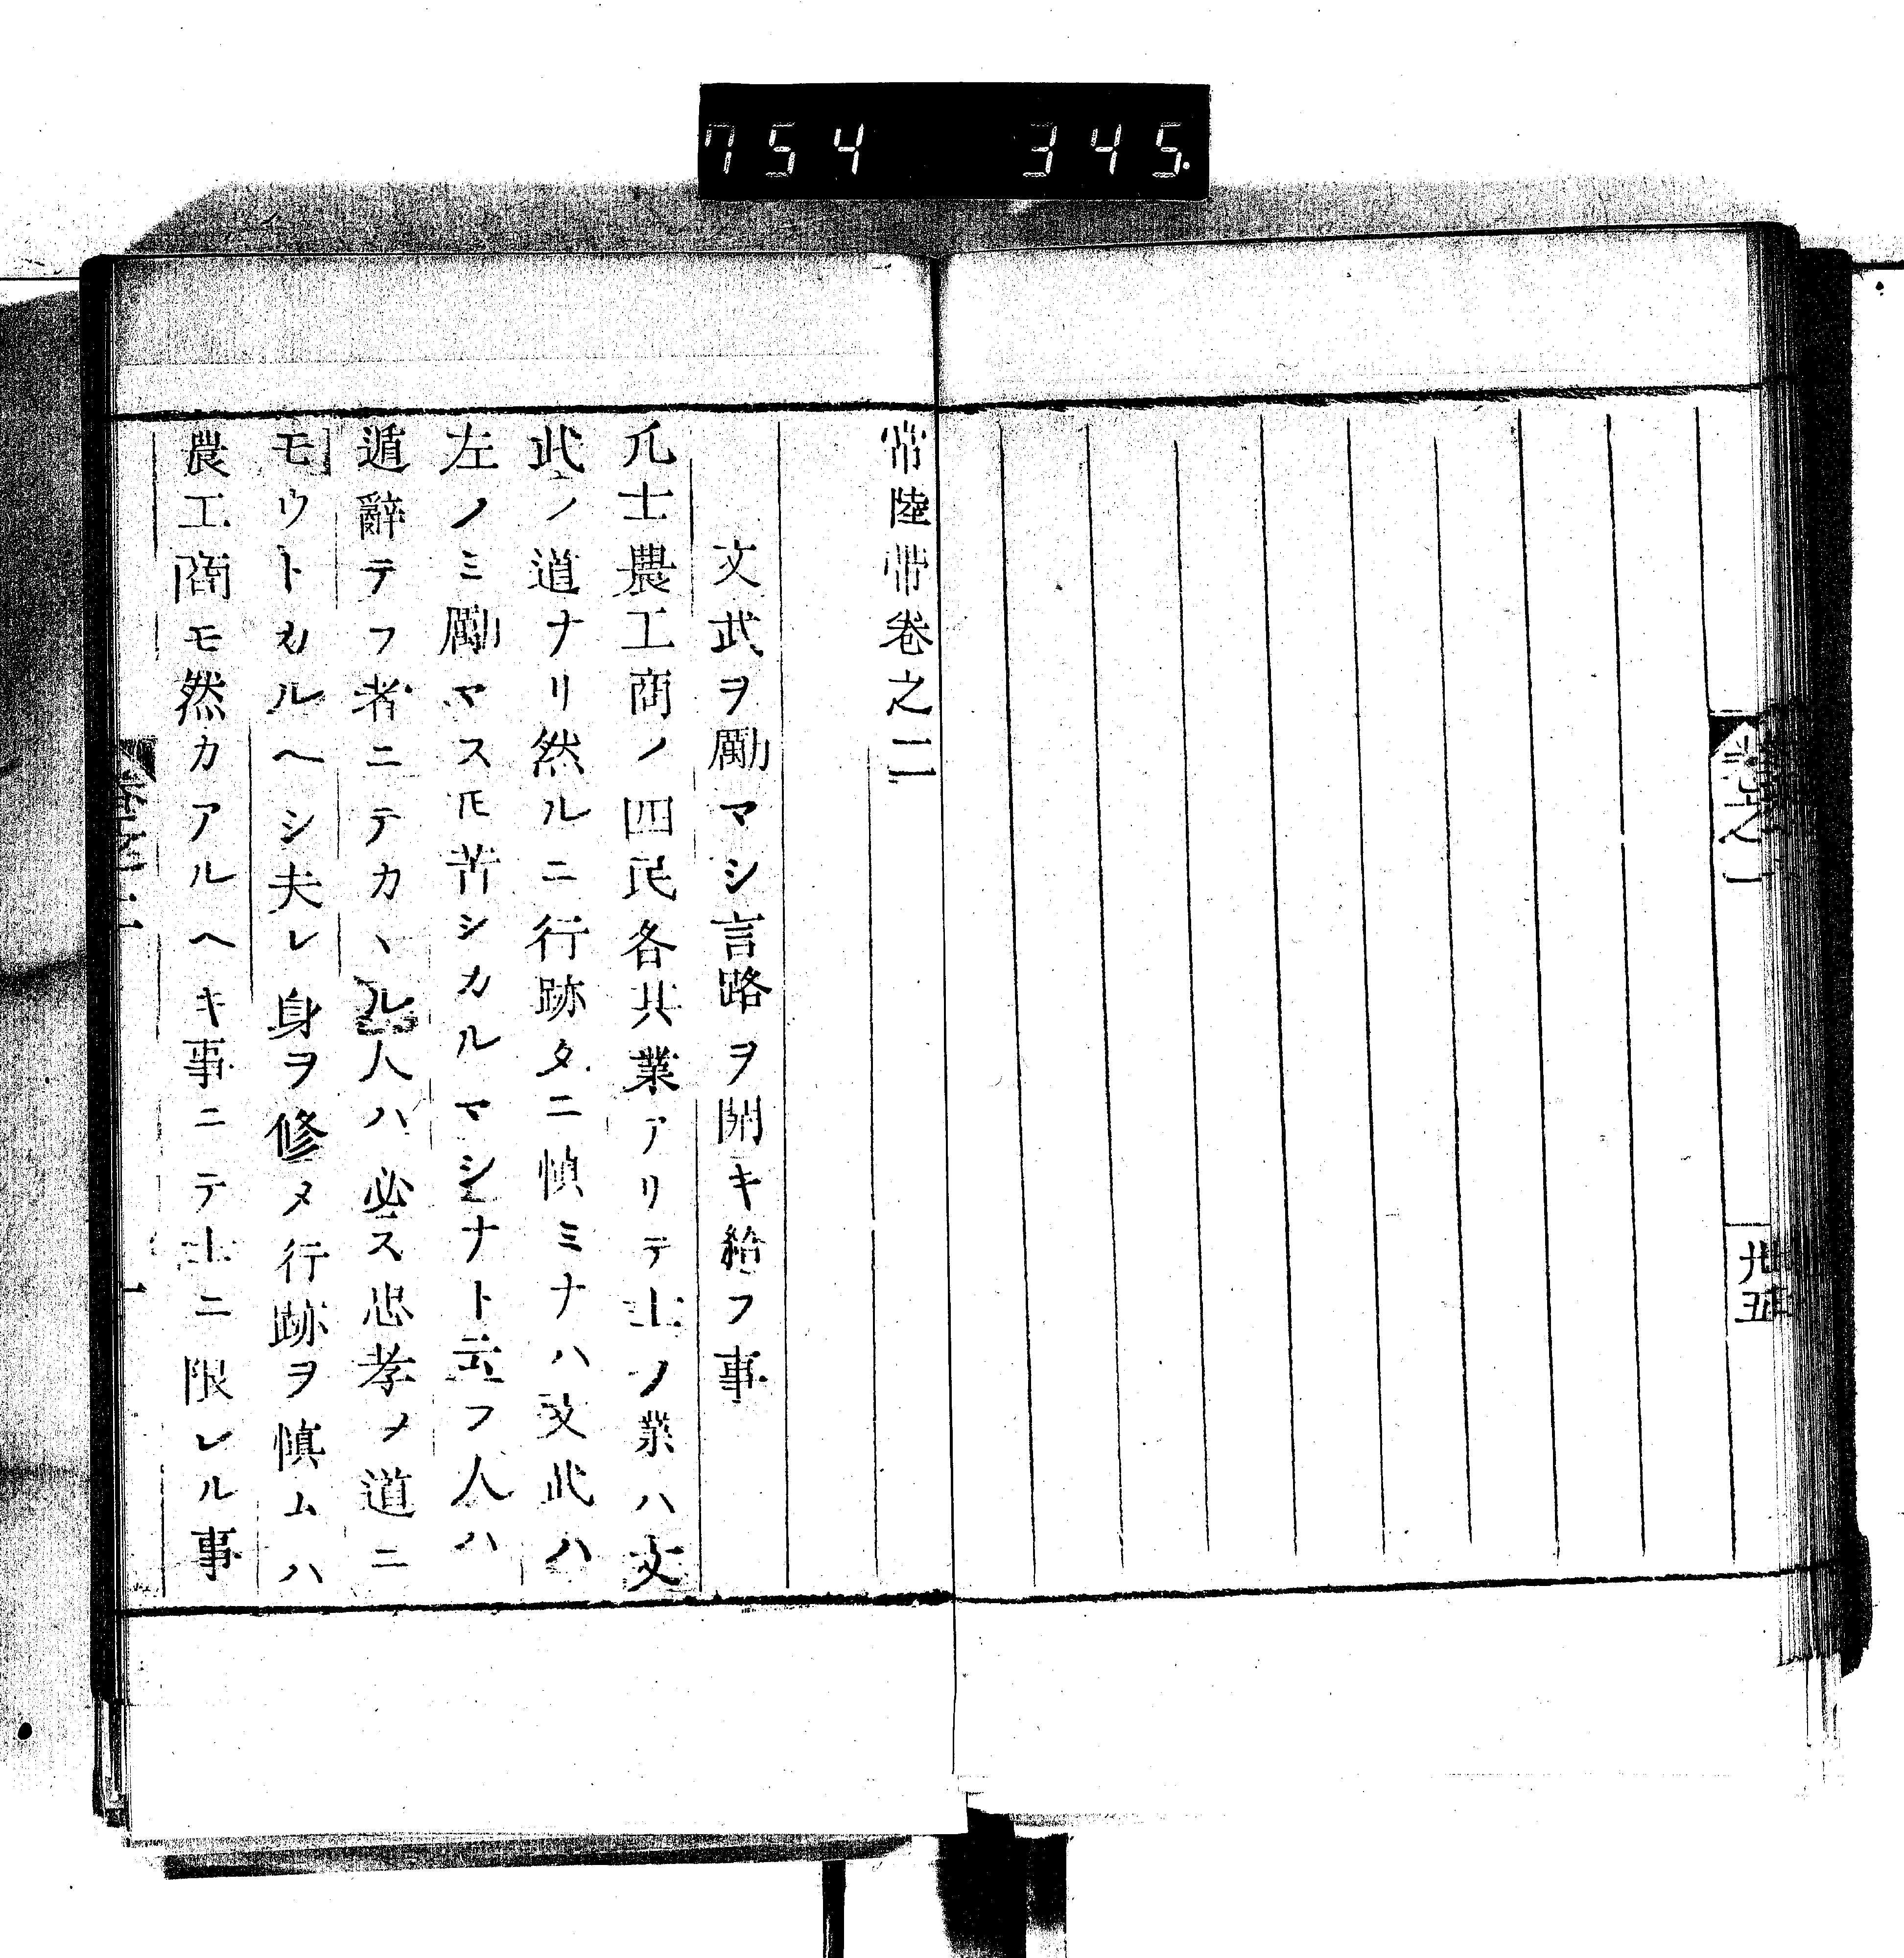 754 345
卷之一
卅五
常陸帶卷之二
文武ヲ勵マシ言路ヲ開キ給フ事
凡士農工商ノ四民各其業アリテ士ノ業ハ文
武ノ道ナリ然ルニ行跡タニ慎ミナハ文武ハ
左ノミ勵マスㇳモ苦シカルマシナト云フ人ハ
遁辭テフ者ニテカヽル人ハ必ス忠孝ノ道ニ
モウトカルヘシ夫レ身ヲ修メ行跡ヲ慎ムハ
農工商モ然カアルヘキ事ニテ士ニ限レル事
一